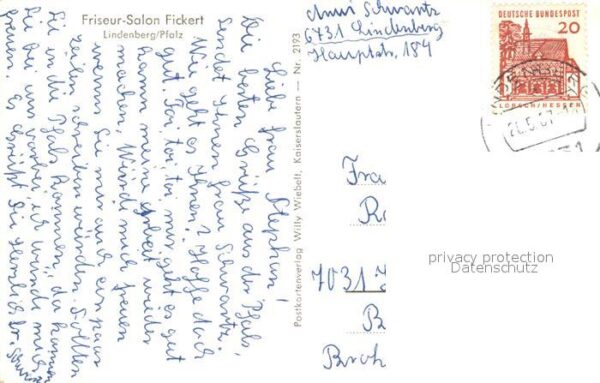 Friseur-Salon Fickert
Lindenberg/Pfalz
Anni Schwartz
6731 Lindenberg
Hauptstr. 184
DEUTSCHE BUNDESPOST
20
LORSCH/HESSEN
Liebe Frau Stephan!
Die besten Grüße aus der Pfalz,
sendet Ihnen Frau Schwartz.
Wie geht es Ihnen? Hoffe doch
gut. Bei mir geht es gut
kann meine Arbeit wieder
machen. Würde mich freuen
wenn Sie mir auch ein paar
Zeilen schreiben würden. Sollten
Sie in die Pfalz kommen, da kommen
Sie bei uns vorbei, ich würde mich
freuen. Es grüßt Sie herzlich Fr. Schwartz
Postkartenverlag Willy Wiebelt, Kaiserslautern — Nr. 2193
Fra
7031
privacy protection
Datenschutz